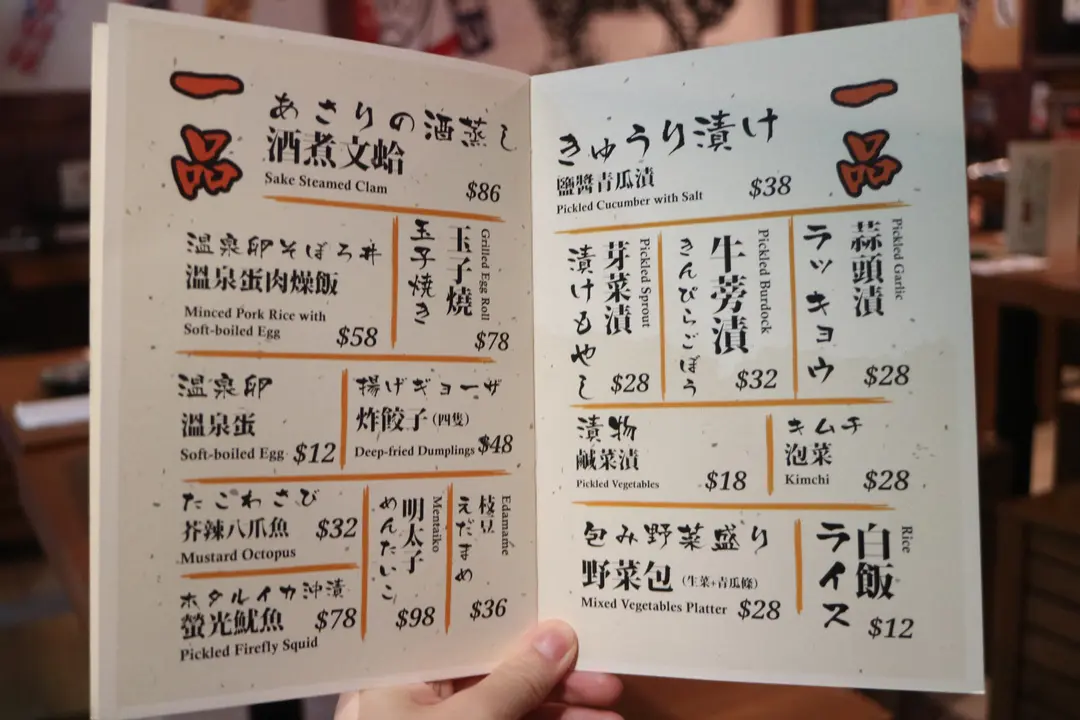 一品
あさりの酒蒸し
酒煮文蛤
Sake Steamed Clam
$86
温泉卵そぼろ丼
溫泉蛋肉燥飯
Minced Pork Rice with
Soft-boiled Egg
$58
玉子焼き
玉子燒
Grilled Egg Roll
$78
温泉卵
溫泉蛋
Soft-boiled Egg
$12
揚げギョーザ
炸餃子(四隻)
Deep-fried Dumplings
$48
たこわさび
芥辣八爪魚
Mustard Octopus
$32
ホタルイカ沖漬
螢光魷魚
Pickled Firefly Squid
$78
めんたいこ
明太子
Mentaiko
$98
えだまめ
枝豆
Edamame
$36
一品
きゅうり漬け
鹽醬青瓜漬
Pickled Cucumber with Salt
$38
漬けもやし
芽菜漬
Pickled Sprout
$28
きんぴらごぼう
牛蒡漬
Pickled Burdock
$32
ラッキョウ
蒜頭漬
Pickled Garlic
$28
漬物
鹹菜漬
Pickled Vegetables
$18
キムチ
泡菜
Kimchi
$28
包み野菜盛り
野菜包(生菜+青瓜條)
Mixed Vegetables Platter
$28
ライス
白飯
Rice
$12